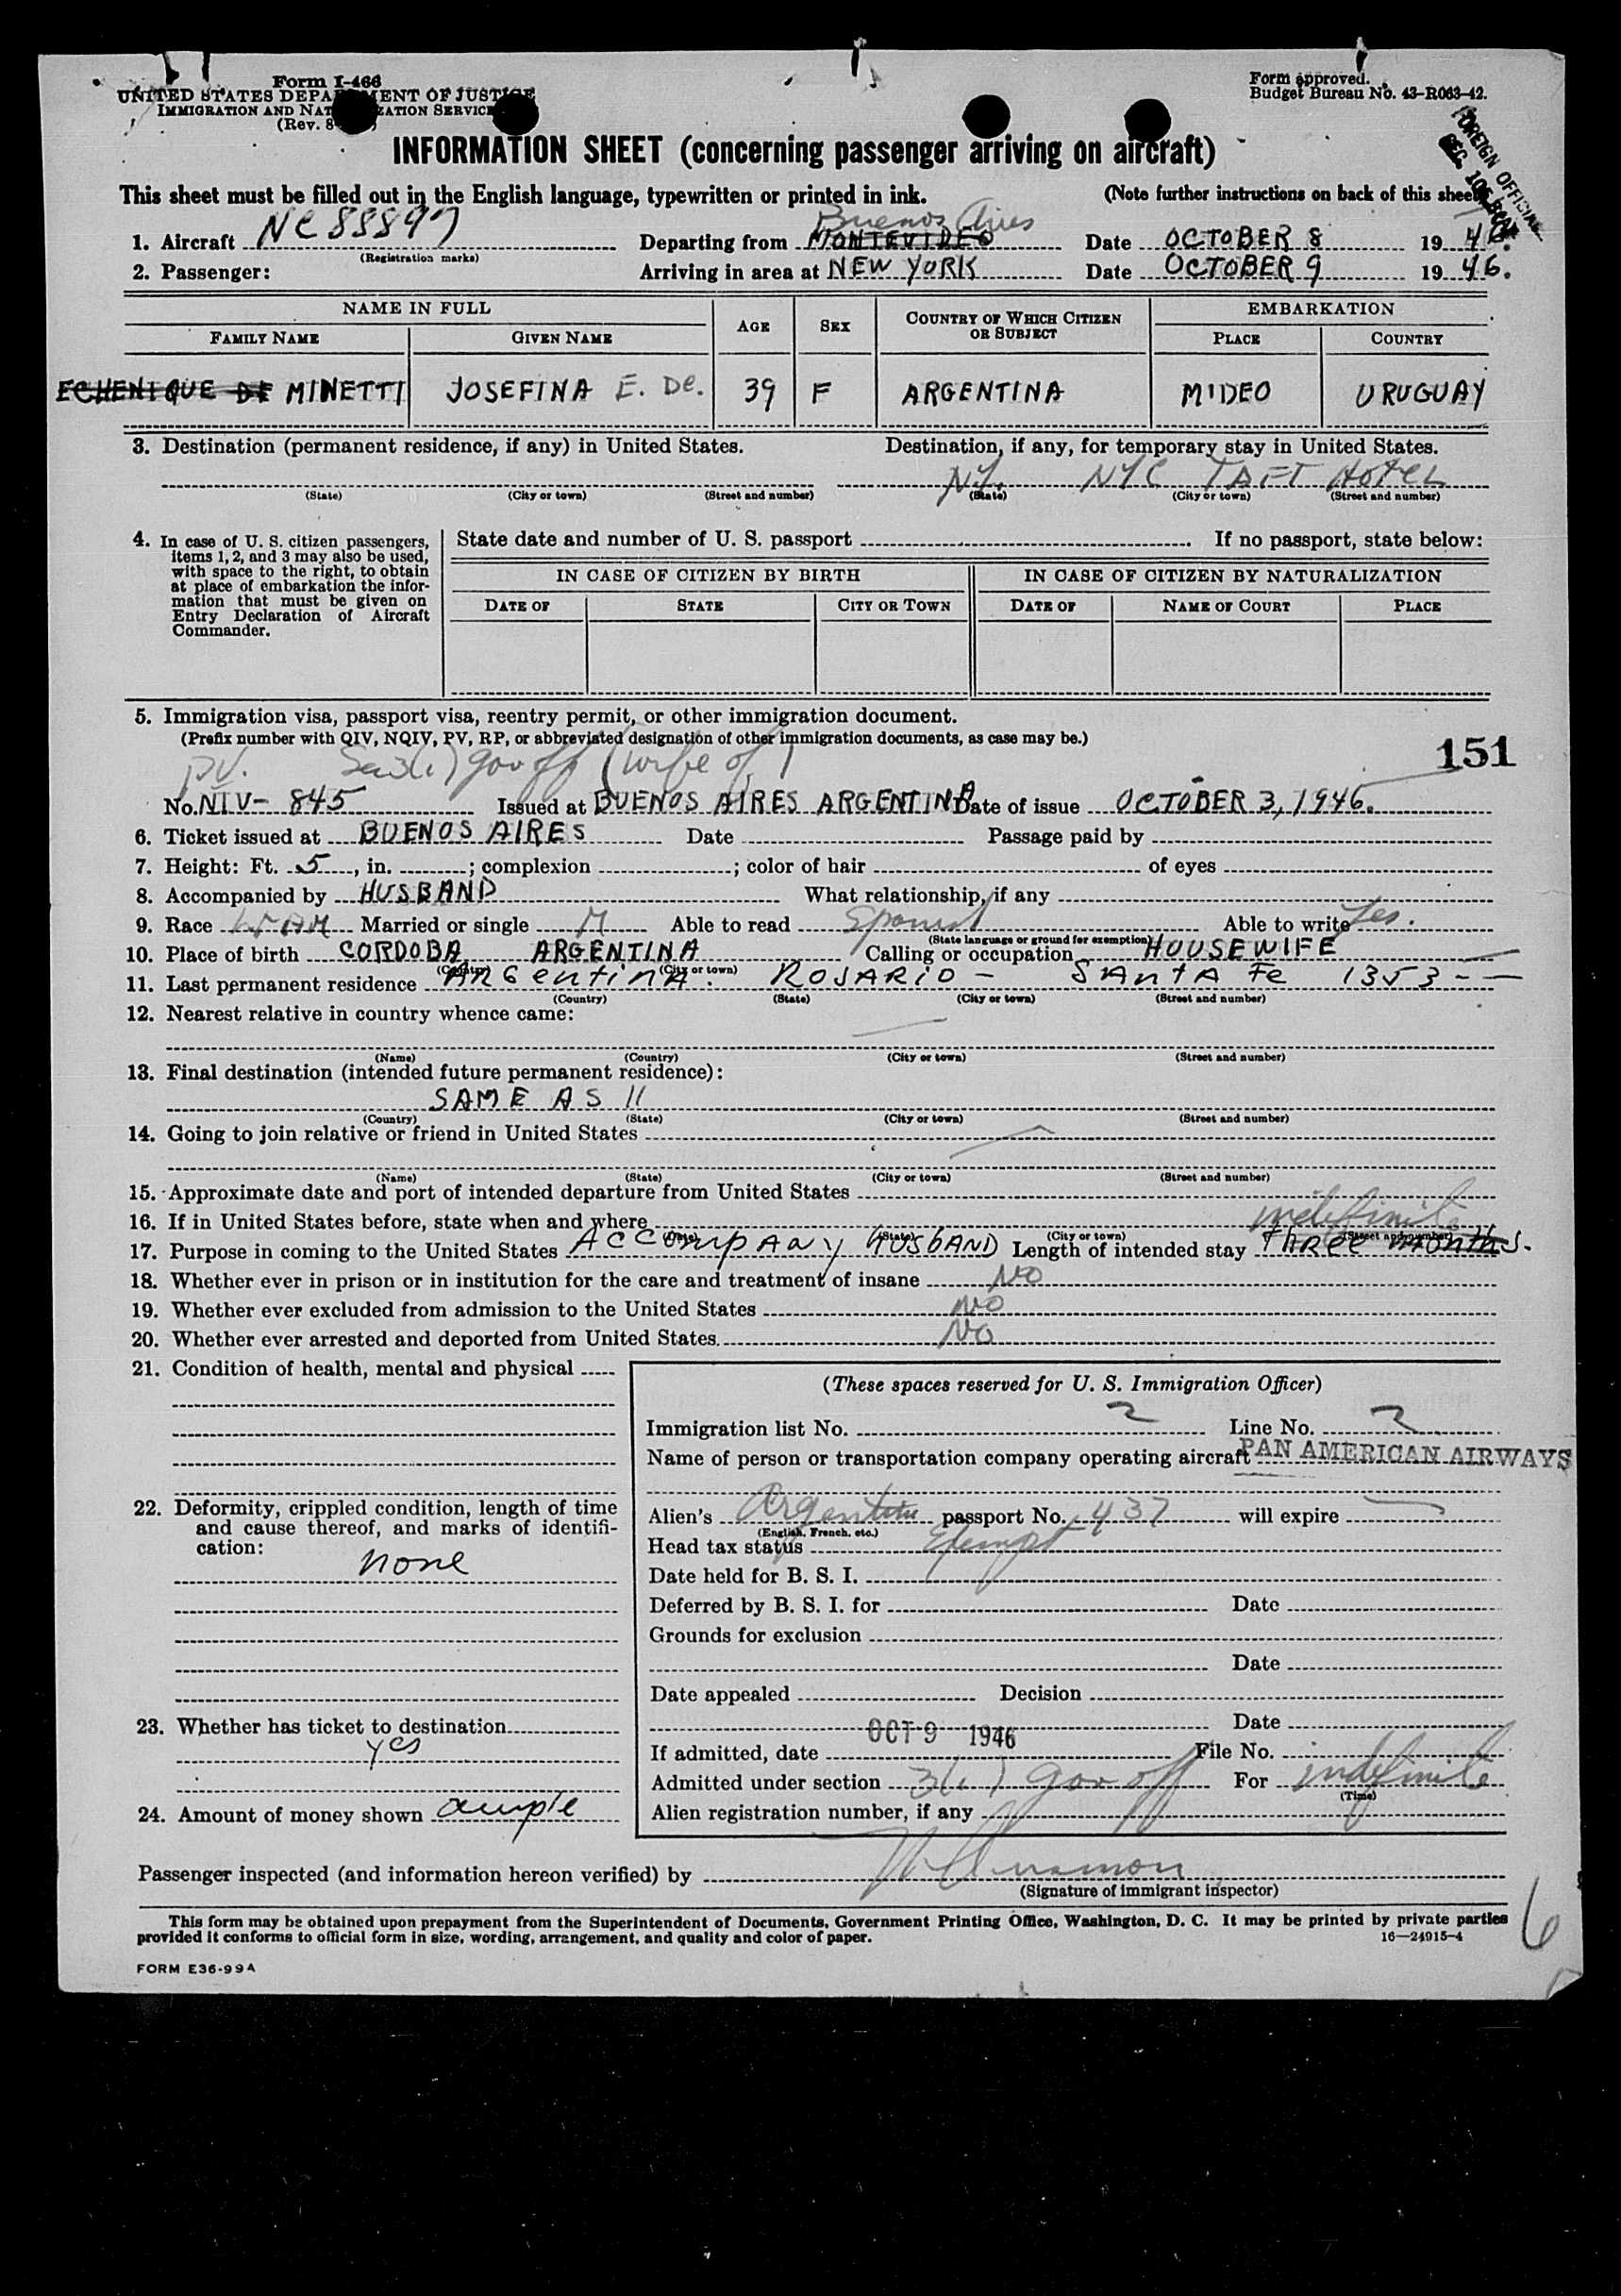 Form I-466
UNITED STATES DEPARTMENT OF JUSTICE
IMMIGRATION AND NATURALIZATION SERVICE
(Rev. 8
Form approved.
Budget Bureau No. 43-R063-42.
INFORMATION SHEET (concerning passenger arriving on aircraft)
FOREIGN OFFICIAL
This sheet must be filled out in the English language, typewritten or printed in ink. (Note further instructions on back of this sheet
Buenos Aires
1. Aircraft NC 88897 Departing from MONTEVIDEO Date OCTOBER 8 1946.
(Registration marks)
2. Passenger: Arriving in area at NEW YORK Date OCTOBER 9 1946.
NAME IN FULL AGE SEX COUNTRY OF WHICH CITIZEN OR SUBJECT EMBARKATION
FAMILY NAME GIVEN NAME PLACE COUNTRY
ECHENIQUE DE MINETTI JOSEFINA E. De. 39 F ARGENTINA M'DEO URUGUAY
3. Destination (permanent residence, if any) in United States. Destination, if any, for temporary stay in United States.
N.Y. NYC TAFT HOTEL
(State) (City or town) (Street and number) (State) (City or town) (Street and number)
4. In case of U. S. citizen passengers, items 1, 2, and 3 may also be used, with space to the right, to obtain at place of embarkation the information that must be given on Entry Declaration of Aircraft Commander.
State date and number of U. S. passport If no passport, state below:
IN CASE OF CITIZEN BY BIRTH IN CASE OF CITIZEN BY NATURALIZATION
DATE OF STATE CITY OR TOWN DATE OF NAME OF COURT PLACE
5. Immigration visa, passport visa, reentry permit, or other immigration document.
(Prefix number with QIV, NQIV, PV, RP, or abbreviated designation of other immigration documents, as case may be.)
151
PV. Sec 3(1) gov off (wife of)
No. NIV- 845 Issued at BUENOS AIRES ARGENTINA Date of issue OCTOBER 3, 1946.
6. Ticket issued at BUENOS AIRES Date Passage paid by
7. Height: Ft. 5, in. ; complexion ; color of hair of eyes
8. Accompanied by HUSBAND What relationship, if any
9. Race Married or single M Able to read Spanish Able to write Yes.
(State language or ground for exemption)
10. Place of birth CORDOBA ARGENTINA Calling or occupation HOUSEWIFE
(Country) (City or town)
11. Last permanent residence ARGENTINA. ROSARIO - SANTA FE 1353 - -
(Country) (State) (City or town) (Street and number)
12. Nearest relative in country whence came:
(Name) (Country) (City or town) (Street and number)
13. Final destination (intended future permanent residence):
SAME AS 11
(Country) (State) (City or town) (Street and number)
14. Going to join relative or friend in United States
(Name) (State) (City or town) (Street and number)
15. Approximate date and port of intended departure from United States
16. If in United States before, state when and where indefinite
(Date) (State) (City or town) (Street and number)
17. Purpose in coming to the United States ACCOMPANY HUSBAND Length of intended stay THREE MONTHS.
18. Whether ever in prison or in institution for the care and treatment of insane NO
19. Whether ever excluded from admission to the United States NO
20. Whether ever arrested and deported from United States. NO
21. Condition of health, mental and physical
22. Deformity, crippled condition, length of time and cause thereof, and marks of identification:
none
23. Whether has ticket to destination
yes
24. Amount of money shown ample
(These spaces reserved for U. S. Immigration Officer)
Immigration list No. 2 Line No. 2
Name of person or transportation company operating aircraft PAN AMERICAN AIRWAYS
Alien's Argentine passport No. 437 will expire
(English, French, etc.)
Head tax status Exempt
Date held for B. S. I.
Deferred by B. S. I. for Date
Grounds for exclusion
Date
Date appealed Decision
Date
If admitted, date OCT 9 1946 File No.
Admitted under section 3(1) gov off For indefinite
(Time)
Alien registration number, if any
Passenger inspected (and information hereon verified) by
(Signature of immigrant inspector)
This form may be obtained upon prepayment from the Superintendent of Documents, Government Printing Office, Washington, D. C. It may be printed by private parties
provided it conforms to official form in size, wording, arrangement, and quality and color of paper. 16—24915-4
6
FORM E36-99A